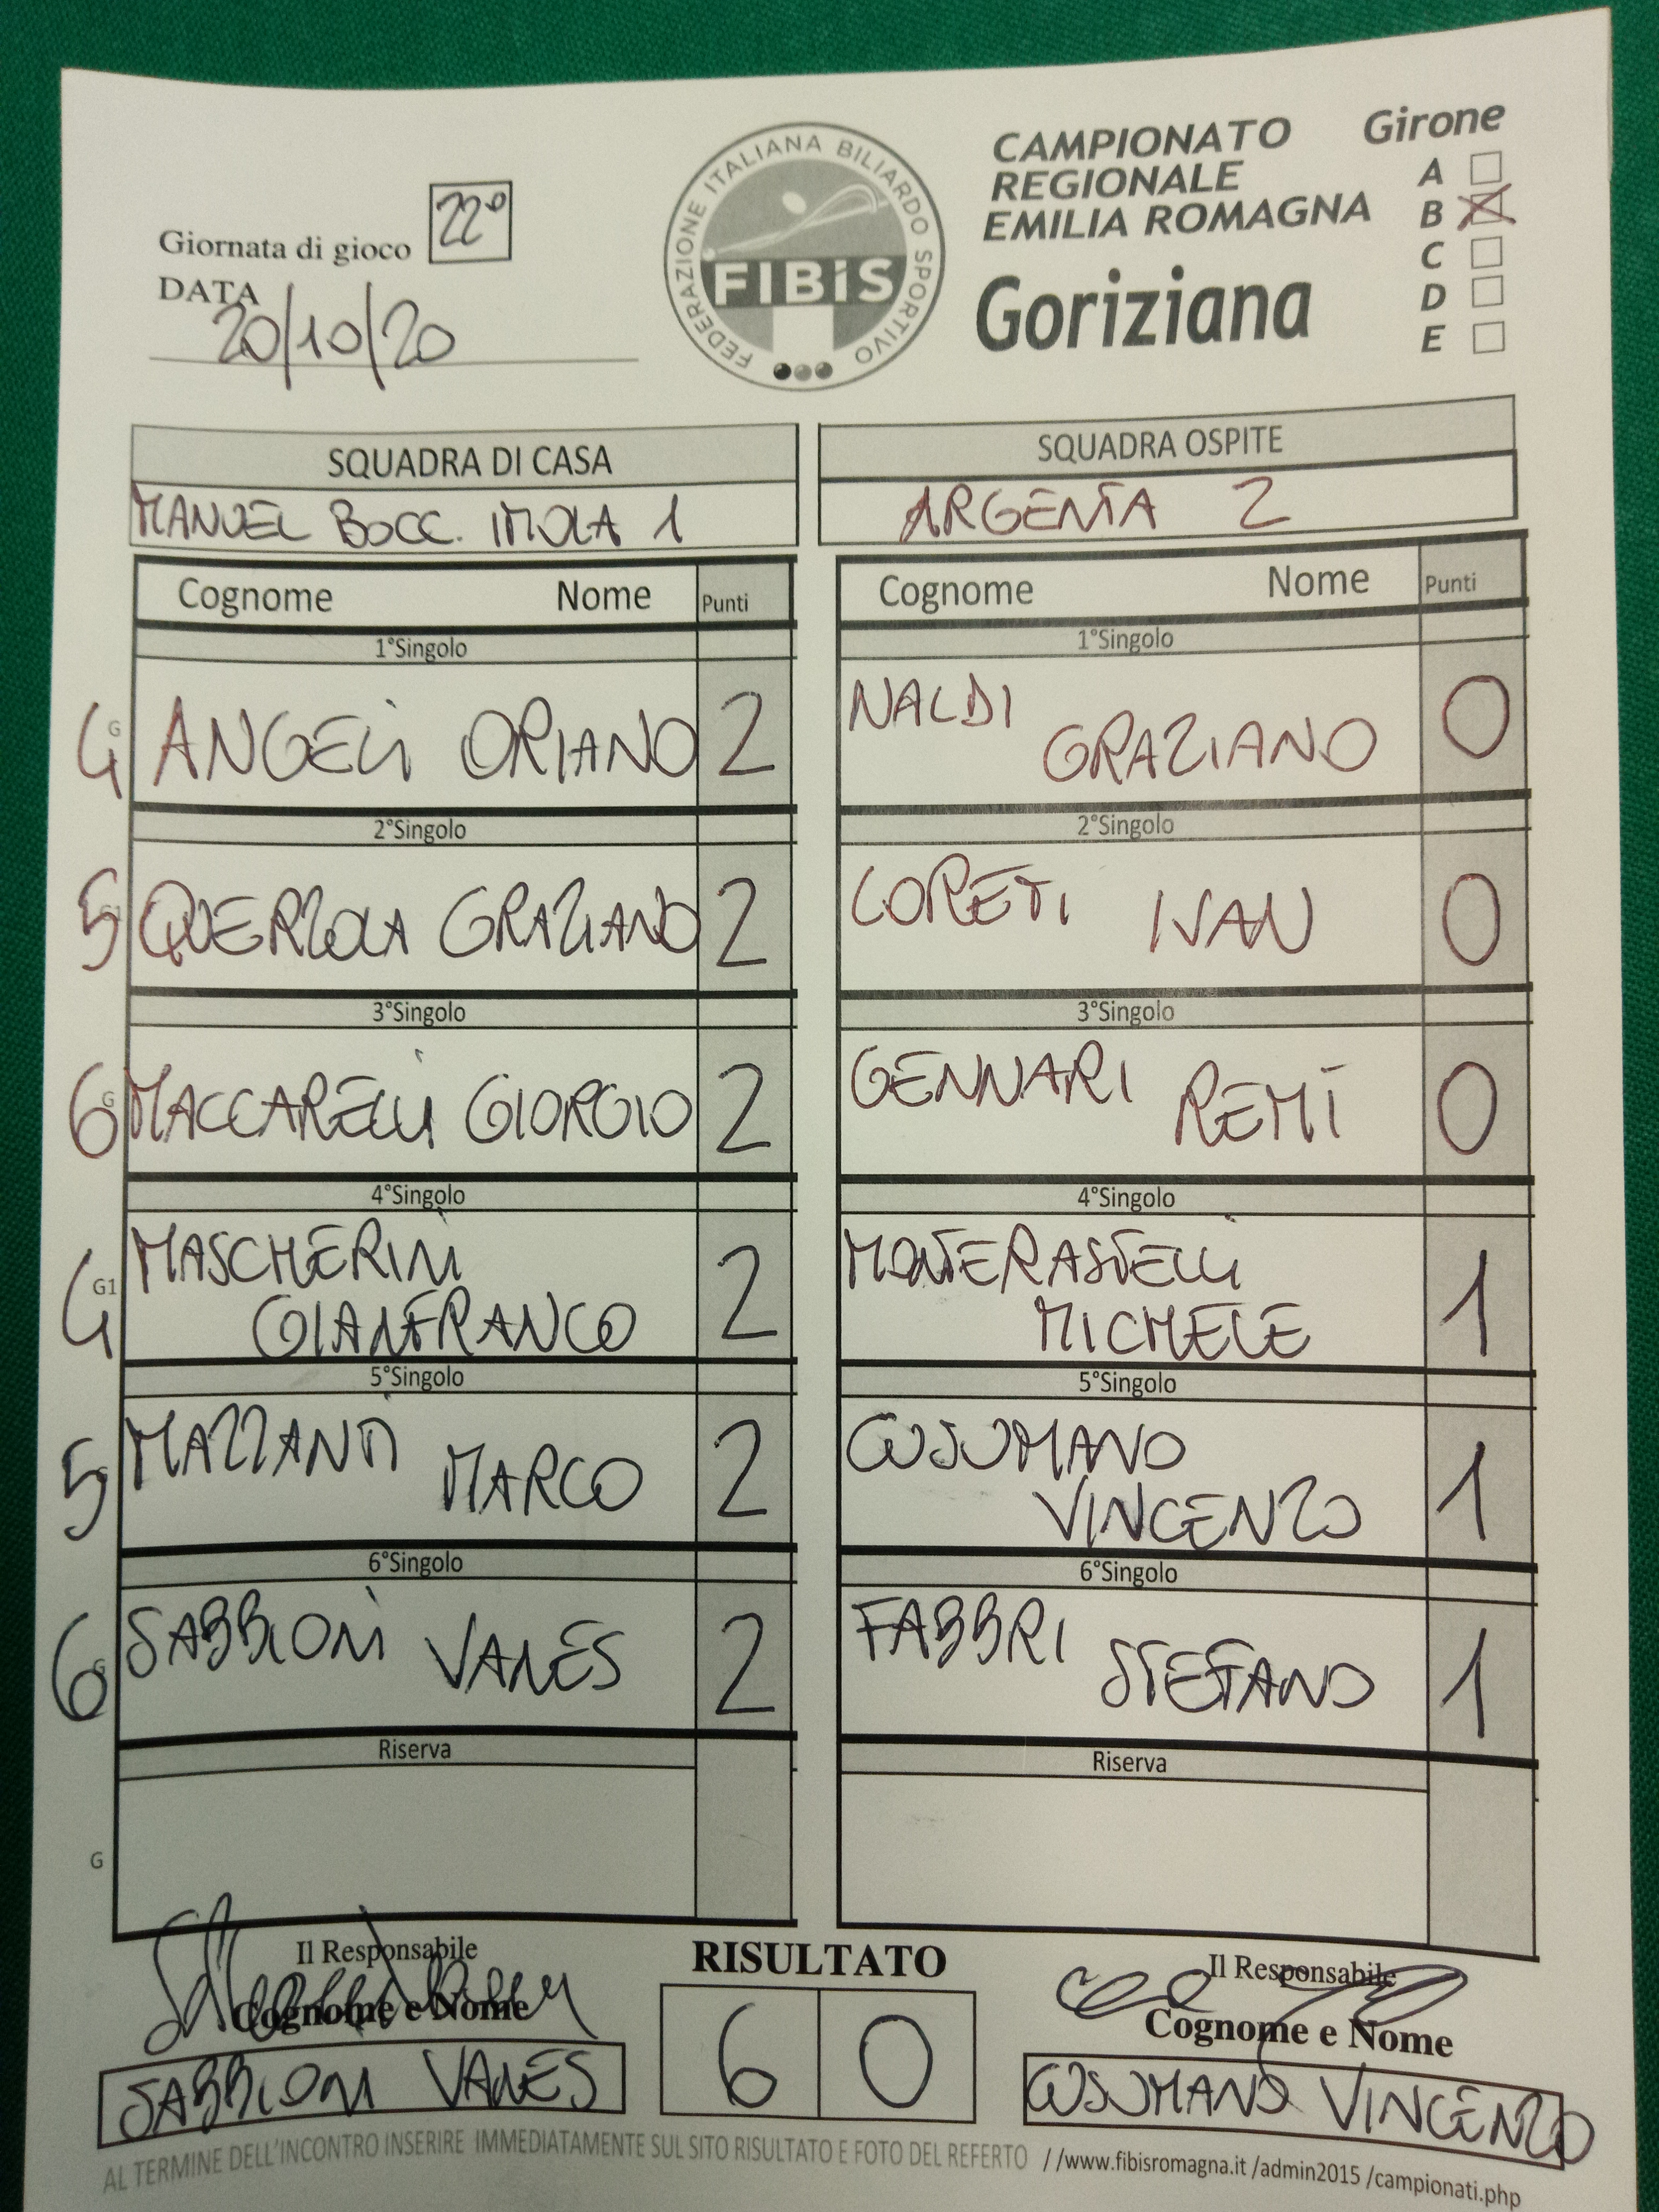 Giornata di gioco 22°
DATA
20/10/20
FEDERAZIONE ITALIANA BILIARDO SPORTIVO
FIBiS
CAMPIONATO
REGIONALE
EMILIA ROMAGNA
Goriziana
Girone
A
B
C
D
E
SQUADRA DI CASA
MANUEL BOCC. IMOLA 1
SQUADRA OSPITE
ARGENTA 2
Cognome Nome Punti
Cognome Nome Punti
1°Singolo
1°Singolo
4 G ANGELI ORIANO 2
NALDI
GRAZIANO 0
2°Singolo
2°Singolo
5 QUERZOLA GRAZIANO 2
LORETI IVAN 0
3°Singolo
3°Singolo
6 G MACCARELLI GIORGIO 2
GENNARI REMI 0
4°Singolo
4°Singolo
4 G1 MASCHERINI
GIANFRANCO 2
MONTERASTELLI
MICHELE 1
5°Singolo
5°Singolo
5 MAZZANTI MARCO 2
CUSUMANO
VINCENZO 1
6°Singolo
6°Singolo
6 G SABBIONI VANES 2
FABBRI STEFANO 1
Riserva
Riserva
G
Il Responsabile
Cognome e Nome
SABBIONI VANES
RISULTATO
6 0
Il Responsabile
Cognome e Nome
CUSUMANO VINCENZO
AL TERMINE DELL'INCONTRO INSERIRE IMMEDIATAMENTE SUL SITO RISULTATO E FOTO DEL REFERTO //www.fibisromagna.it /admin2015 /campionati.php